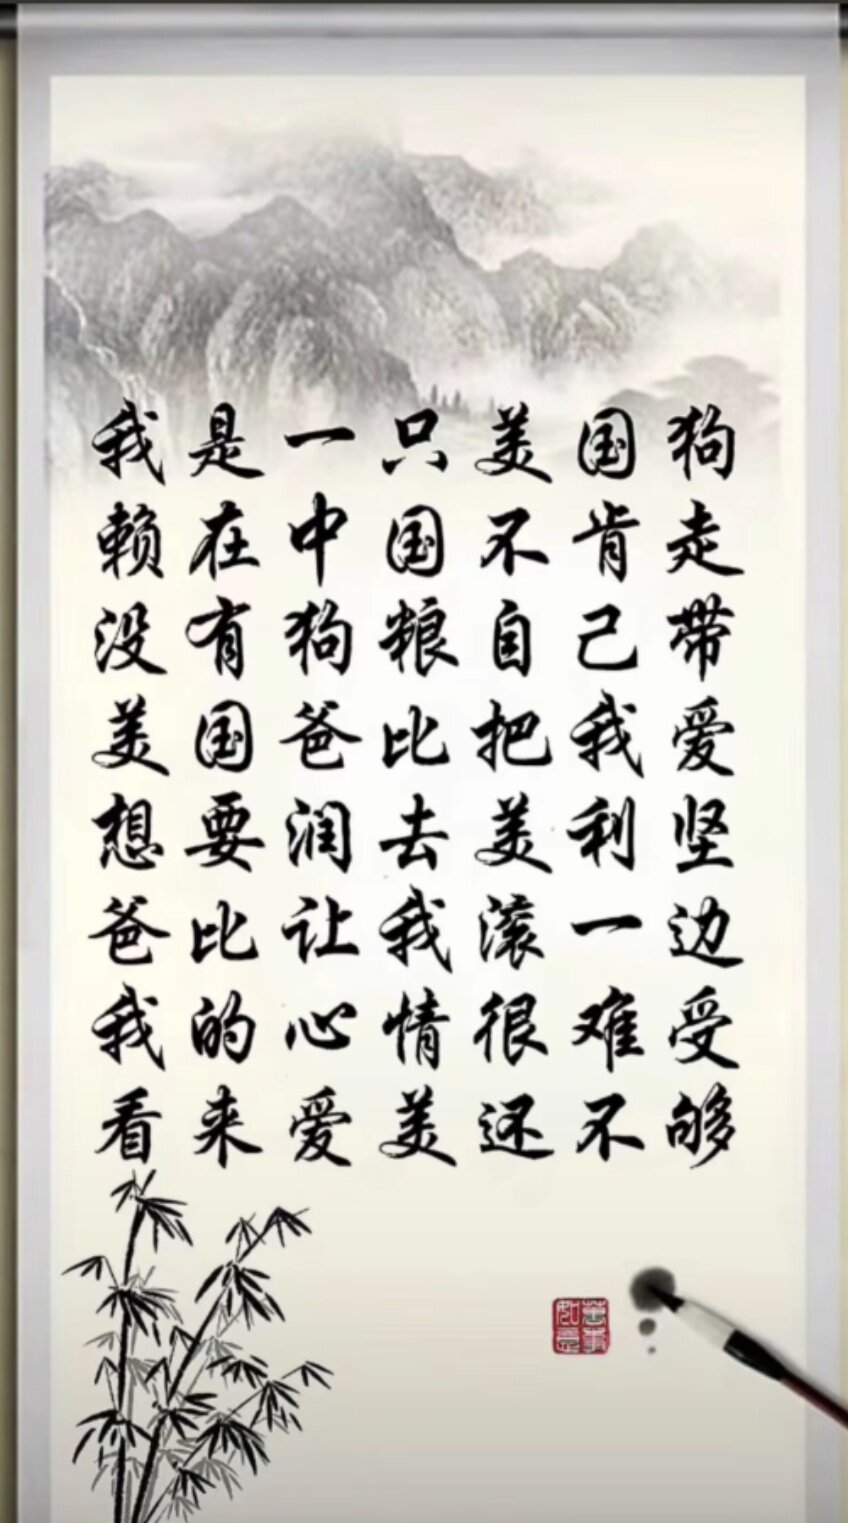 我是一只美国狗
赖在中国不肯走
没有狗粮自己带
美国爸比把我爱
想要润去美利坚
爸比让我滚一边
我的心情很难受
看来爱美还不够
万事
如意